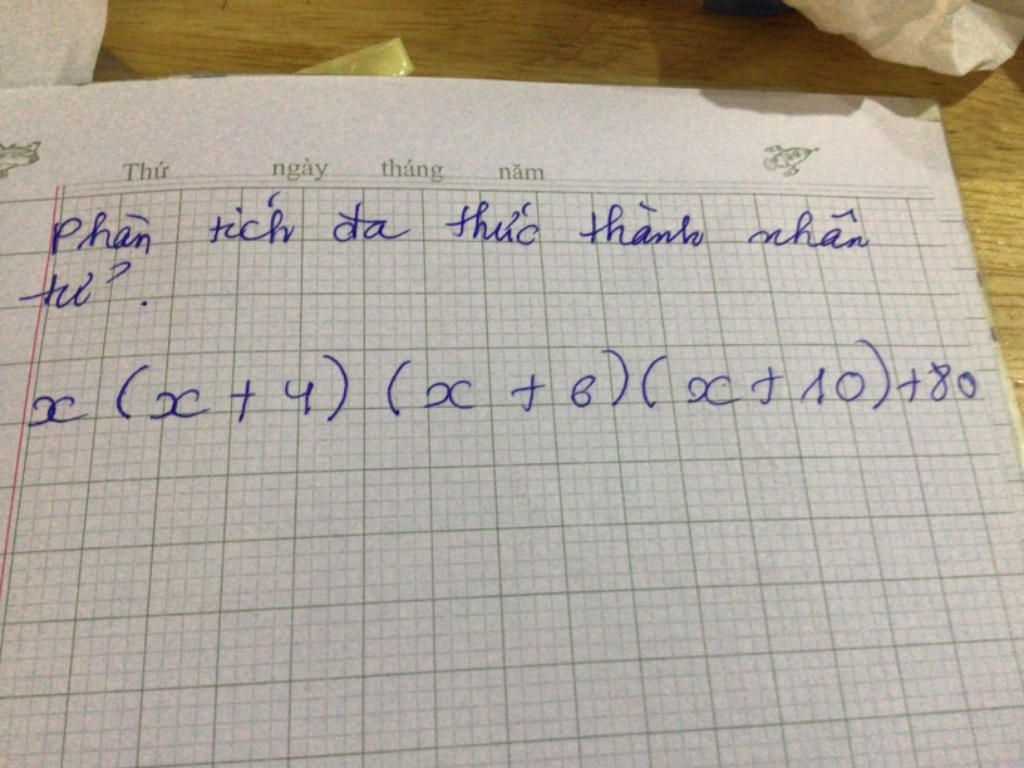 Thứ ngày tháng năm
Phân tích đa thức thành nhân
tử.
x (x + 4) (x + 6)(x + 10)+80